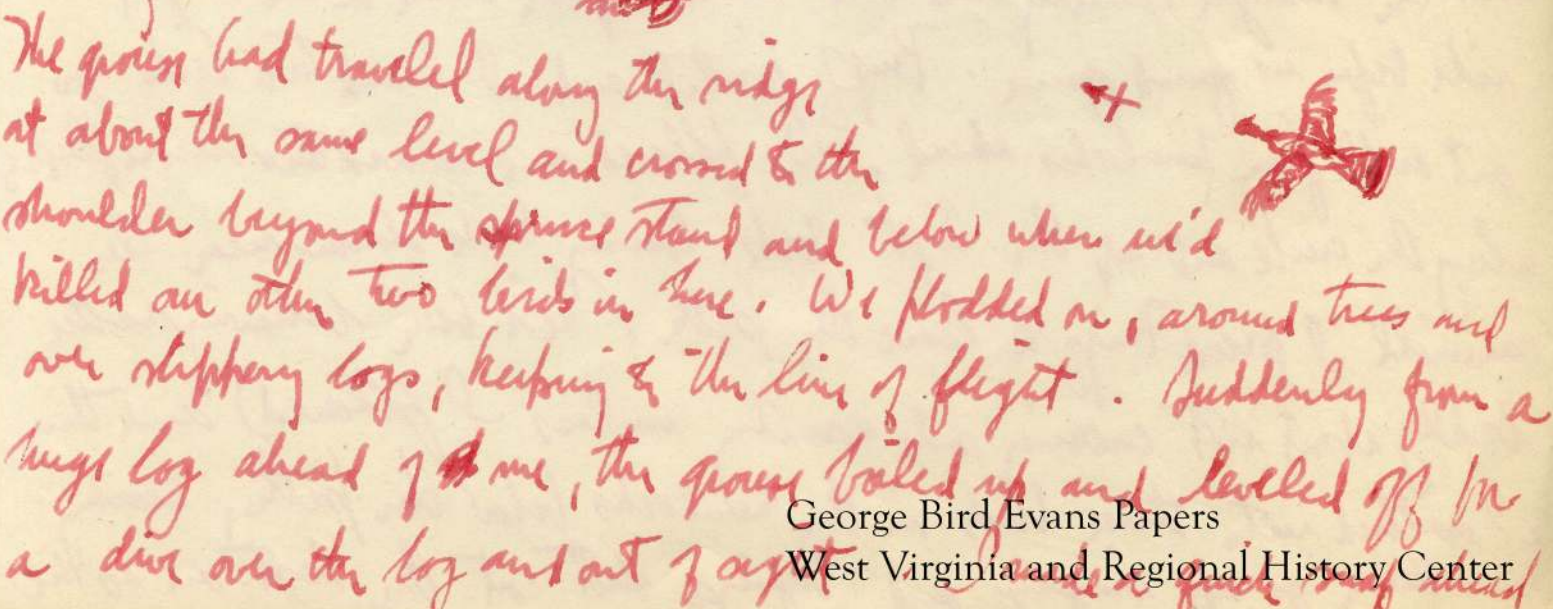 The grouse had traveled along the ridge
at about the same level and crossed to the
shoulder beyond the spruce stand and below where we'd
killed our other two birds in here. We plodded on, around trees and
over slippery logs, keeping to the line of flight. Suddenly from a
huge log ahead of me, the grouse boiled up and leveled off for
a dive over the log and out of sight
George Bird Evans Papers
West Virginia and Regional History Center